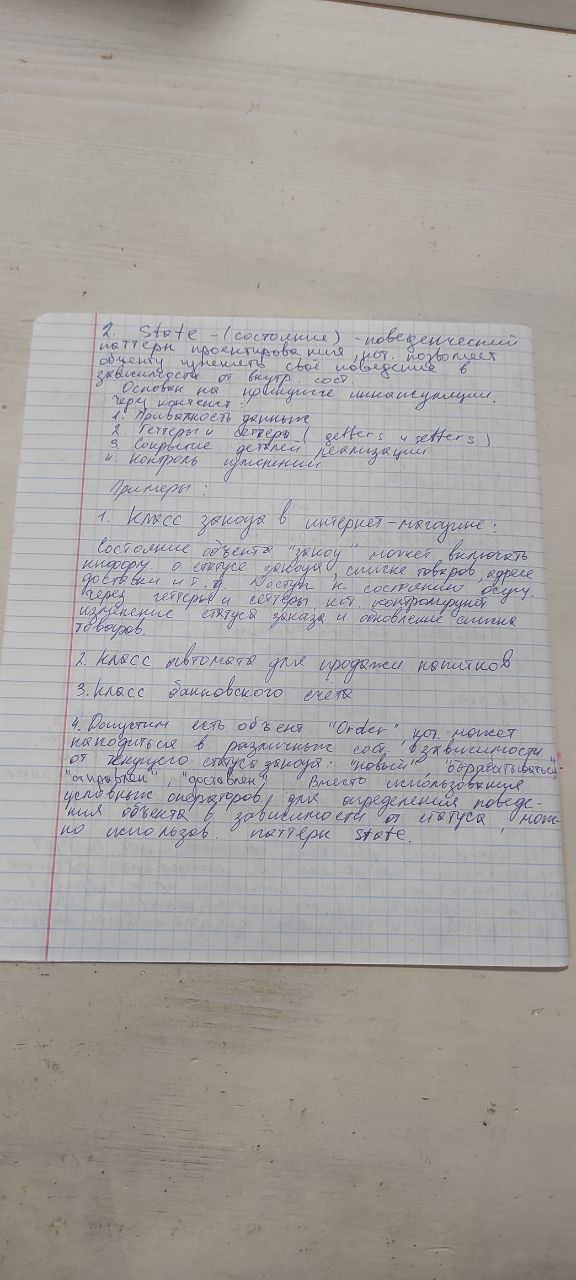 2. State - (состояние) - поведенческий
паттерн проектирования, кот. позволяет
объекту изменять своё поведение в
зависимости от внутр. сост.
Основан на принципе инкапсуляции.
через контекст:
1. Приватность данных
2. Геттеры и сеттеры (getters и setters)
3. Сокрытие деталей реализации
4. Контроль изменений
Примеры:
1. Класс заказа в интернет-магазине:
Состояние объекта "заказ" может включать
информ о статусе заказа, списке товаров, адресе
доставки и т.д. Доступ к состоянию осущ.
через геттеры и сеттеры кот. контролируют
изменение статуса заказа и обновление списка
товаров.
2. Класс автомата для продажи напитков
3. Класс банковского счета
4. Допустим есть объект "Order", кот. может
находиться в различных сост. в зависимости
от текущего статуса заказа: "новый", "обрабатывается",
"отправлен", "доставлен". Вместо использования
условных операторов для определения поведе-
ния объекта в зависимости от статуса, мож-
но использов. паттерн State.